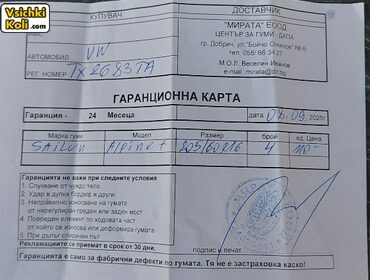 Vsichki
Koli.com
КУПУВАЧ
ДОСТАВЧИК
"МИРАТА" ЕООД
ЦЕНТЪР ЗА ГУМИ - ДАПА
гр. Добрич, ул."Бойчо Огнянов" № 6
тел. 058/ 66 34 27
М.О.Л. Веселин Иванов
e-mail: mirata@dir.bg
АВТОМОБИЛ VW
РЕГ. НОМЕР TX2683TA
ГАРАНЦИОННА КАРТА
Гаранция - 24 Месеца дата 08.09.2025г
Марка гуме Модел Размер брой ед. Цена
SAILUN Alpine+ 205/60R16 4 110-
Гаранцията не важи при следните условия
1. Спукване от чуждо тяло
2. Удар в дупка бордюр и други.
3. Неправилно износване на гумата
от нерегулиран преден или заден мост
4. Повреден елемент по ходовата част
от който се износва или деформира гумата
5. При дълъг спукачен път.
Рекламациите се приемат в срок от 30 дни.
подпис и печат
Гаранцията е само за фабрични дефекти по гумата. Тя не е застраховка каско!